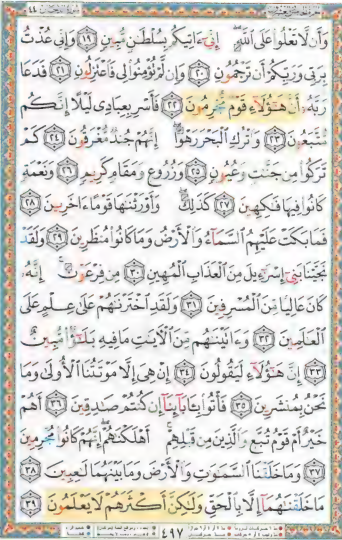 وَأَن لَّا تَعْلُوا۟ عَلَى ٱللَّهِ ۖ إِنِّىٓ ءَاتِيكُم بِسُلْطَـٰنٍ مُّبِينٍ ١٩ وَإِنِّى عُذْتُ
بِرَبِّى وَرَبِّكُمْ أَن تَرْجُمُونِ ٢٠ وَإِن لَّمْ تُؤْمِنُوا۟ لِى فَٱعْتَزِلُونِ ٢١ فَدَعَا
رَبَّهُۥٓ أَنَّ هَـٰٓؤُلَآءِ قَوْمٌ مُّجْرِمُونَ ٢٢ فَأَسْرِ بِعِبَادِى لَيْلًا إِنَّكُم
مُّتَّبَعُونَ ٢٣ وَٱتْرُكِ ٱلْبَحْرَ رَهْوًا ۖ إِنَّهُمْ جُندٌ مُّغْرَقُونَ ٢٤ كَمْ
تَرَكُوا۟ مِن جَنَّـٰتٍ وَعُيُونٍ ٢٥ وَزُرُوعٍ وَمَقَامٍ كَرِيمٍ ٢٦ وَنَعْمَةٍ
كَانُوا۟ فِيهَا فَـٰكِهِينَ ٢٧ كَذَٰلِكَ ۖ وَأَوْرَثْنَـٰهَا قَوْمًا ءَاخَرِينَ ٢٨
فَمَا بَكَتْ عَلَيْهِمُ ٱلسَّمَآءُ وَٱلْأَرْضُ وَمَا كَانُوا۟ مُنظَرِينَ ٢٩ وَلَقَدْ
نَجَّيْنَا بَنِىٓ إِسْرَٰٓءِيلَ مِنَ ٱلْعَذَابِ ٱلْمُهِينِ ٣٠ مِن فِرْعَوْنَ ۚ إِنَّهُۥ
كَانَ عَالِيًا مِّنَ ٱلْمُسْرِفِينَ ٣١ وَلَقَدِ ٱخْتَرْنَـٰهُمْ عَلَىٰ عِلْمٍ عَلَى
ٱلْعَـٰلَمِينَ ٣٢ وَءَاتَيْنَـٰهُم مِّنَ ٱلْـَٔايَـٰتِ مَا فِيهِ بَلَـٰٓؤٌا۟ مُّبِينٌ
٣٣ إِنَّ هَـٰٓؤُلَآءِ لَيَقُولُونَ ٣٤ إِنْ هِىَ إِلَّا مَوْتَتُنَا ٱلْأُولَىٰ وَمَا
نَحْنُ بِمُنشَرِينَ ٣٥ فَأْتُوا۟ بِـَٔابَآئِنَآ إِن كُنتُمْ صَـٰدِقِينَ ٣٦ أَهُمْ
خَيْرٌ أَمْ قَوْمُ تُبَّعٍ وَٱلَّذِينَ مِن قَبْلِهِمْ ۚ أَهْلَكْنَـٰهُمْ ۖ إِنَّهُمْ كَانُوا۟ مُجْرِمِينَ
٣٧ وَمَا خَلَقْنَا ٱلسَّمَـٰوَٰتِ وَٱلْأَرْضَ وَمَا بَيْنَهُمَا لَـٰعِبِينَ ٣٨
مَا خَلَقْنَـٰهُمَآ إِلَّا بِٱلْحَقِّ وَلَـٰكِنَّ أَكْثَرَهُمْ لَا يَعْلَمُونَ ٣٩
٤٩٧